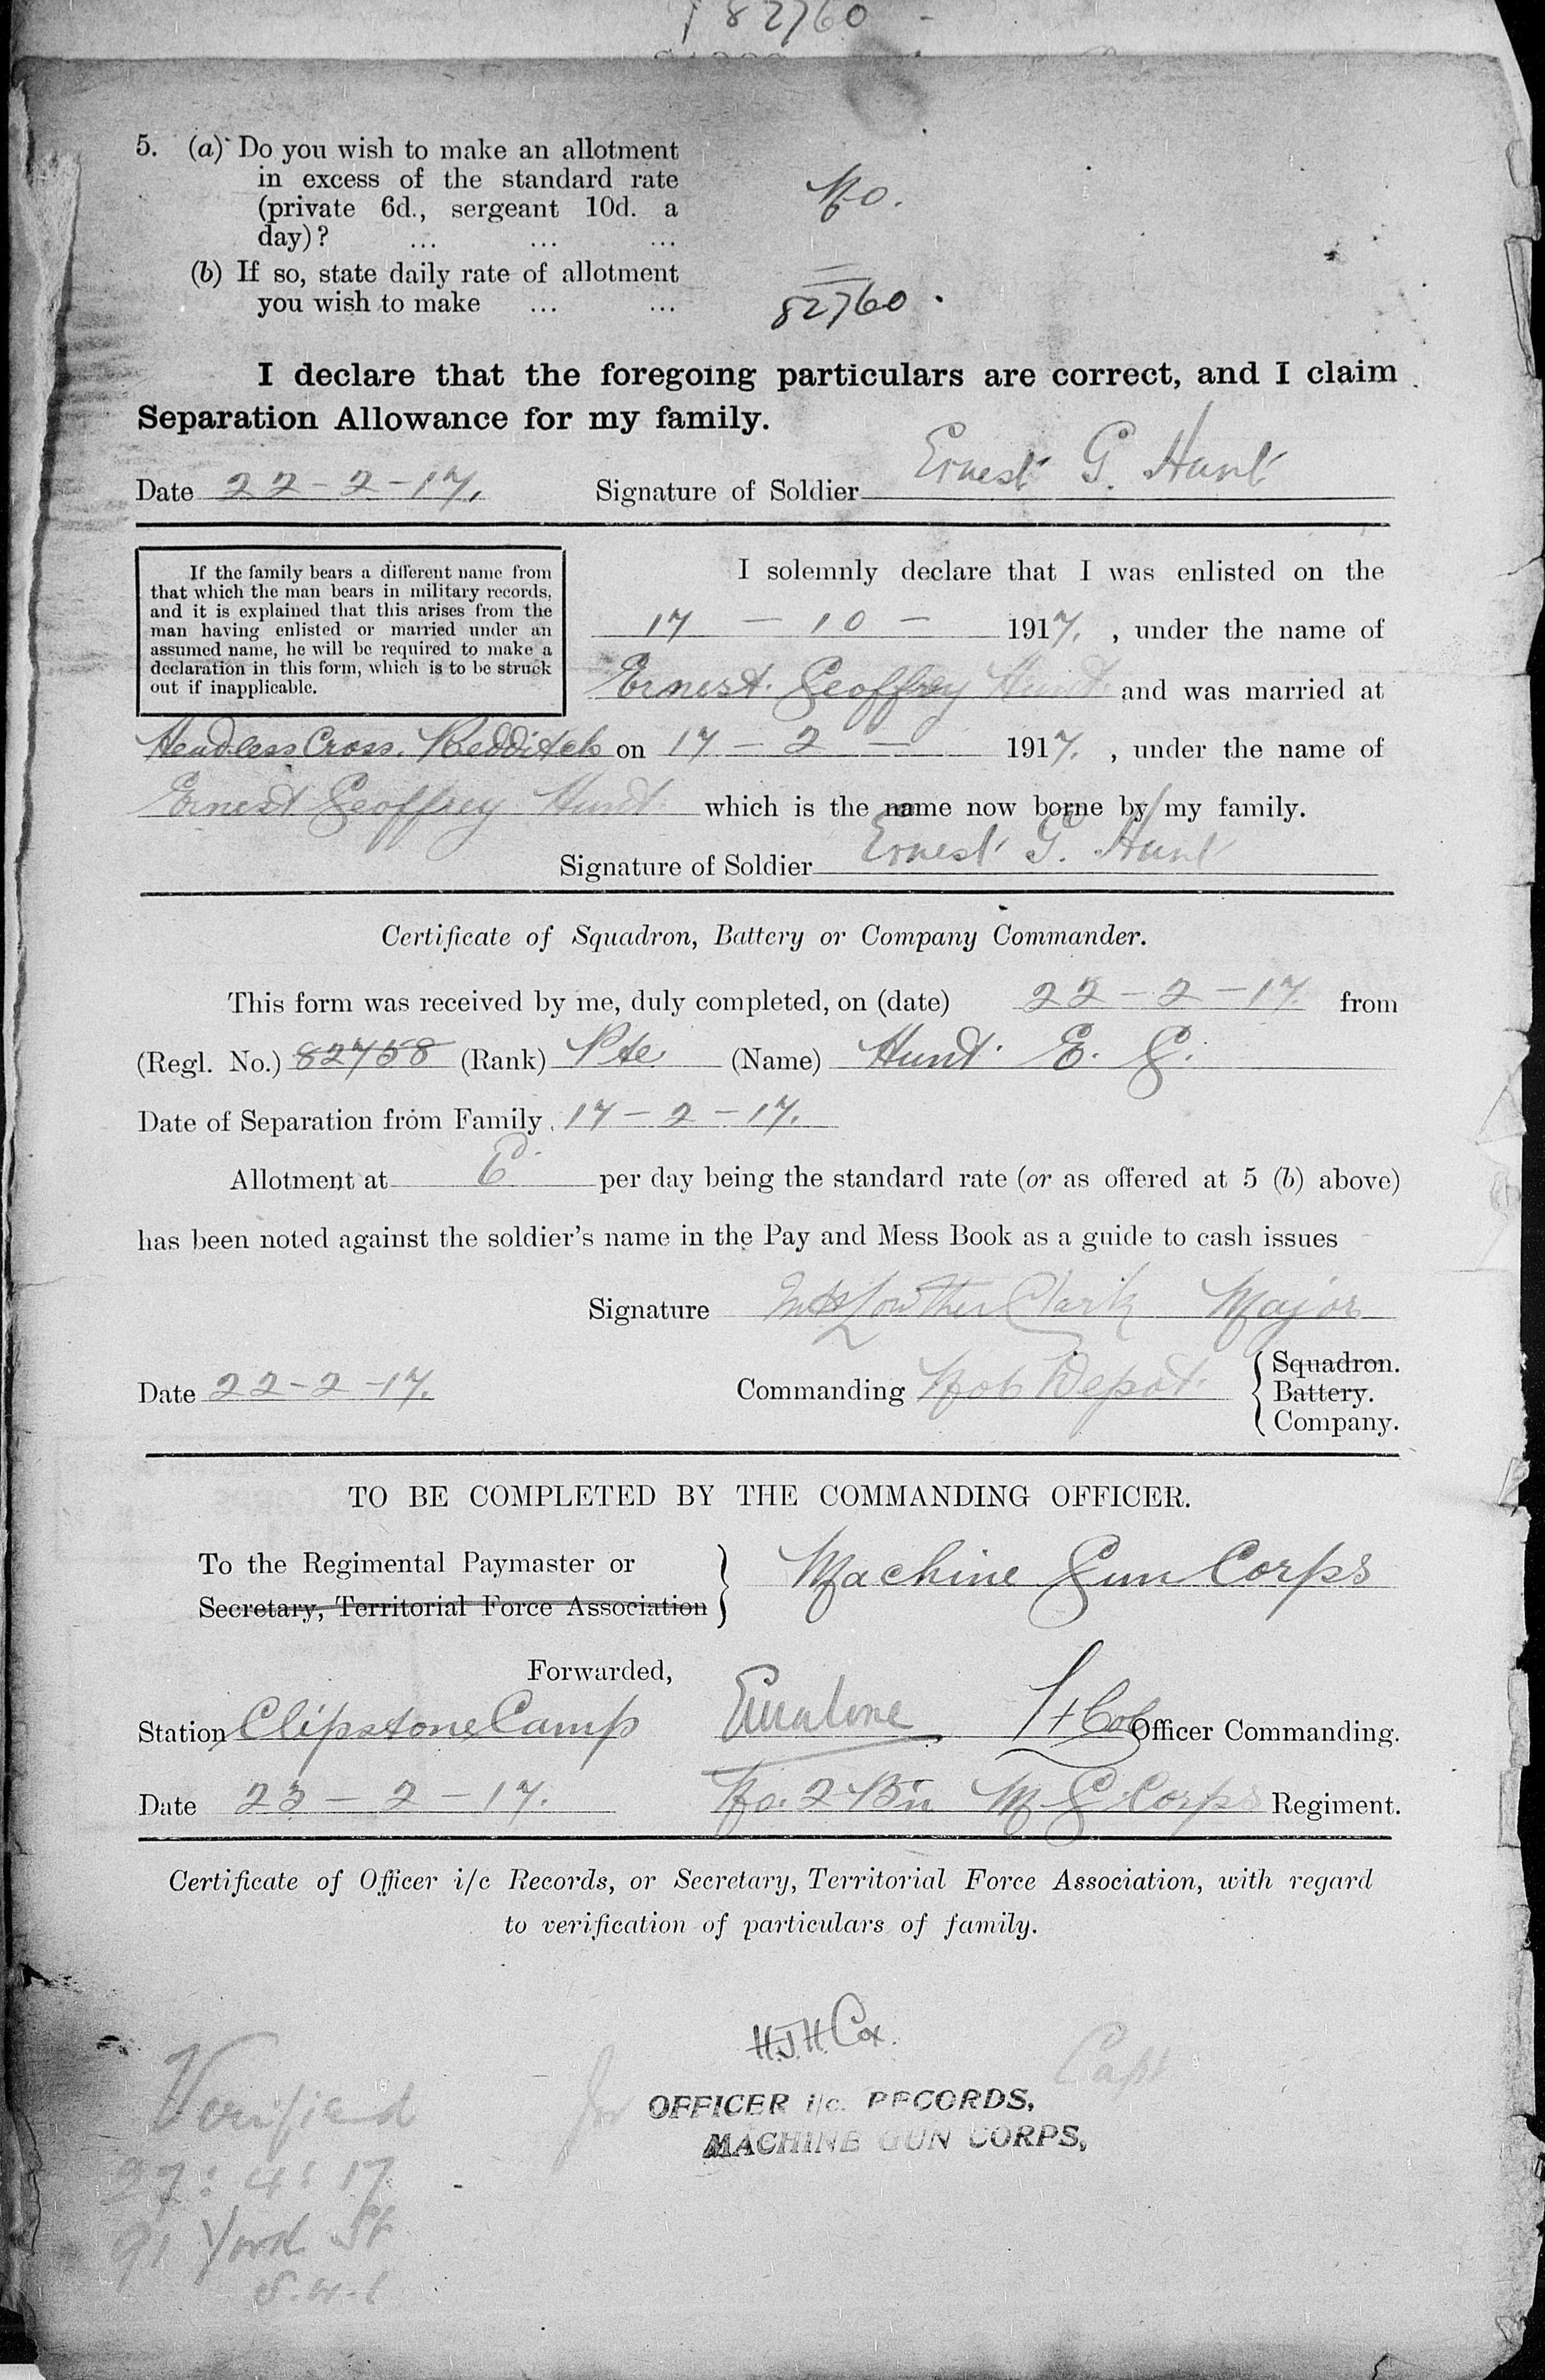 82760
5. (a) Do you wish to make an allotment
in excess of the standard rate
(private 6d., sergeant 10d. a
day)? ... ... ...
No.
(b) If so, state daily rate of allotment
you wish to make ... ...
82760.
I declare that the foregoing particulars are correct, and I claim
Separation Allowance for my family.
Date 22-2-17. Signature of Soldier Ernest G. Hunt
If the family bears a different name from
that which the man bears in military records,
and it is explained that this arises from the
man having enlisted or married under an
assumed name, he will be required to make a
declaration in this form, which is to be struck
out if inapplicable.
I solemnly declare that I was enlisted on the
17 - 10 - 1917. , under the name of
Ernest Geoffrey Hunt and was married at
Headless Cross. Redditch on 17 - 2 - 1917. , under the name of
Ernest Geoffrey Hunt which is the name now borne by my family.
Signature of Soldier Ernest G. Hunt
Certificate of Squadron, Battery or Company Commander.
This form was received by me, duly completed, on (date) 22-2-17. from
(Regl. No.) 82758 (Rank) Pte (Name) Hunt. E. G.
Date of Separation from Family 17-2-17.
Allotment at 6d. per day being the standard rate (or as offered at 5 (b) above)
has been noted against the soldier's name in the Pay and Mess Book as a guide to cash issues
Signature Lowther Clark Major
Date 22-2-17. Commanding Mob Depot. Squadron.
Battery.
Company.
TO BE COMPLETED BY THE COMMANDING OFFICER.
To the Regimental Paymaster or
Secretary, Territorial Force Association
Machine Gun Corps
Forwarded,
Station Clipstone Camp Lt Col Officer Commanding.
Date 23-2-17. No. 2 Bn M G Corps Regiment.
Certificate of Officer i/c Records, or Secretary, Territorial Force Association, with regard
to verification of particulars of family.
H.J.H. Cox.
Capt
for OFFICER i/c. RECORDS,
MACHINE GUN CORPS,
Verified
27:4:17
91 York St
S.W.1